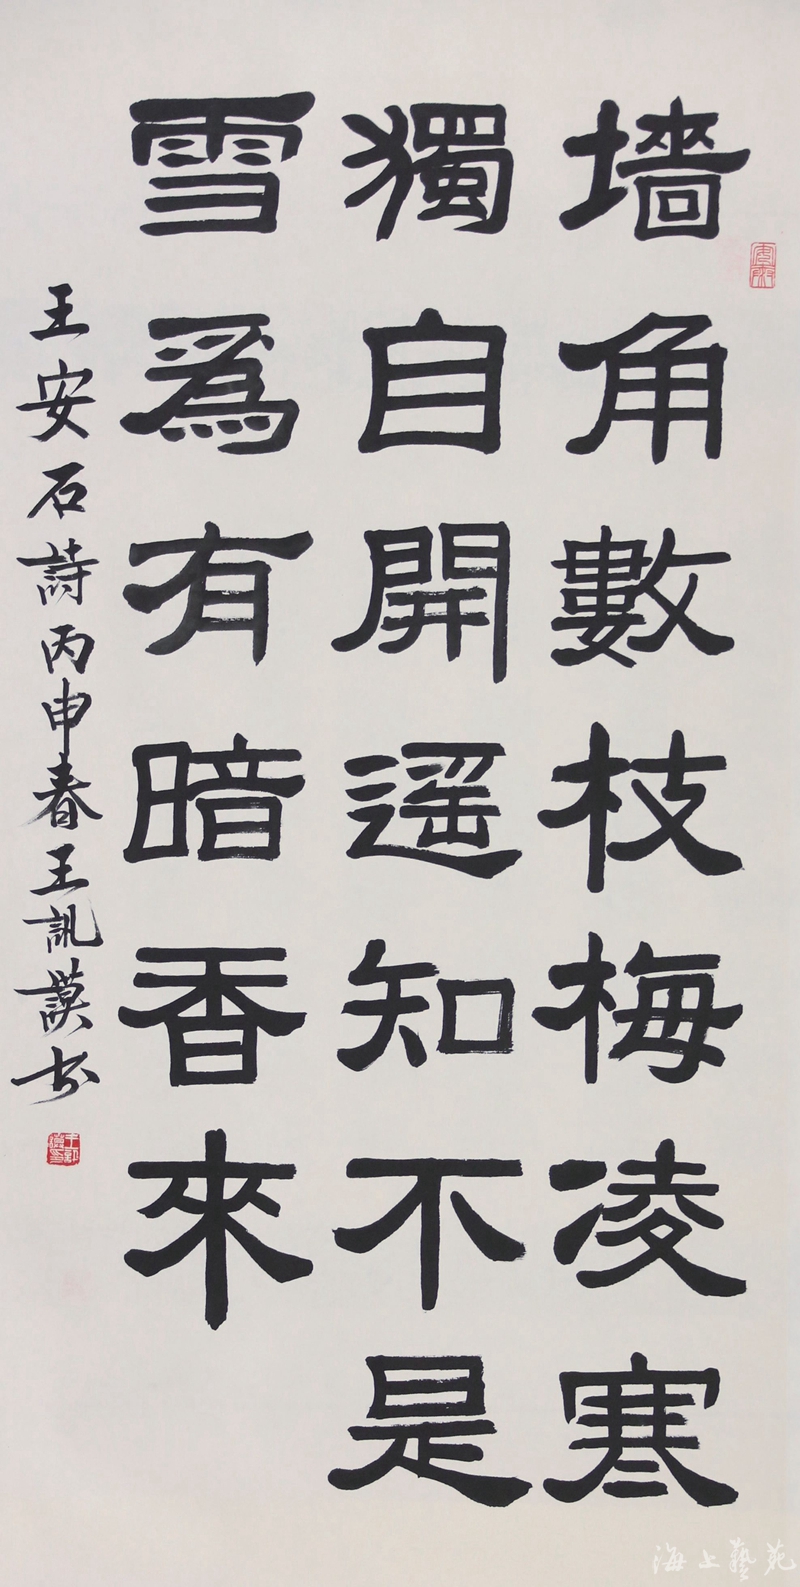 墻角數枝梅凌寒
獨自開遥知不是
雪為有暗香來
王安石詩丙申春王訊謨书
海上藝苑